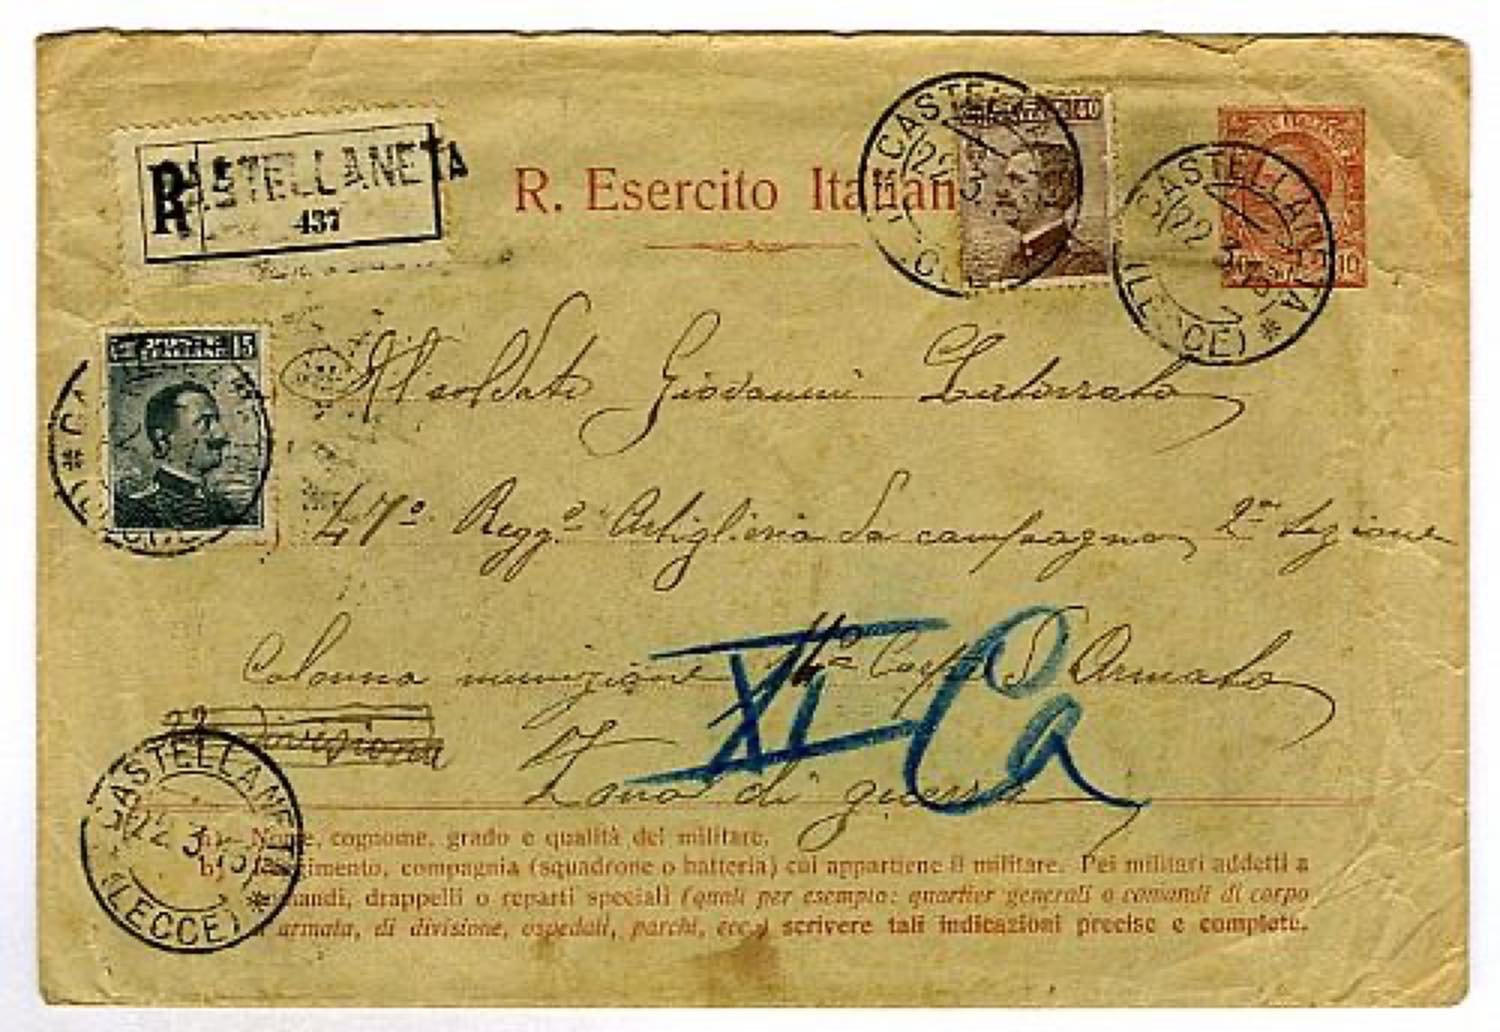 R CASTELLANETA
437
R. Esercito Italian
CASTELLANETA
22 3
(LECCE)
40
10
15
All soldato Giovanni
47º Reggº Artiglieria da campagna, 2ª Sezione
Colonna munizione 4º Corpo d'Armata
22 Divisione
XI Ca
Zona di guerra
Nome, cognome, grado e qualità del militare.
b) gimento, compagnia (squadrone o batteria) cui appartiene il militare. Pei militari addetti a
mandi, drappelli o reparti speciali (quali per esempio: quartier generali o comandi di corpo
armata, di divisione, ospedali, parchi, ecc.) scrivere tali indicazioni precise e complete.
CASTELLANETA
22 3
(LECCE)